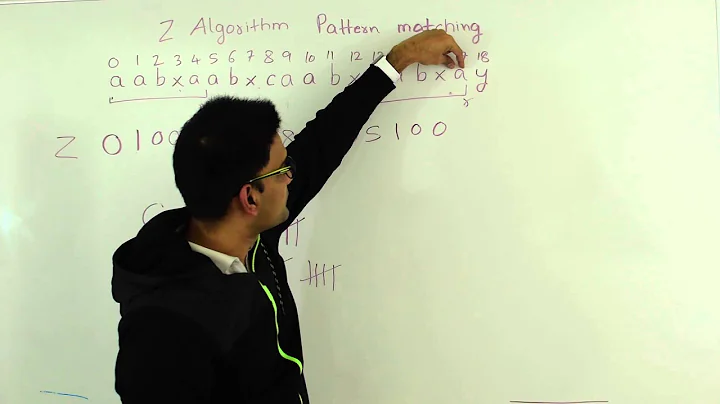 Z Algorithm Pattern matching
0 1 2 3 4 5 6 7 8 9 10 11 12 18
a a b x a a b x c a a b x b x a y
Z 0 1 0 0 8 5 1 0 0